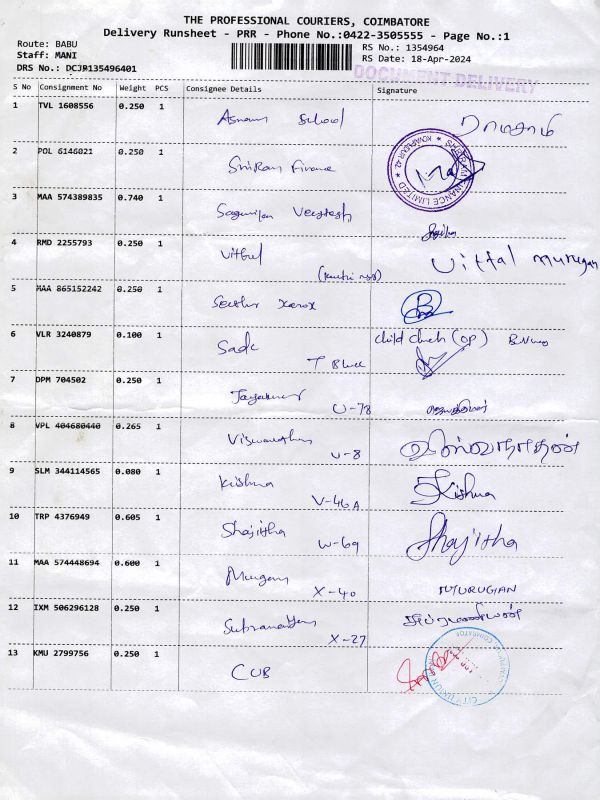 THE PROFESSIONAL COURIERS, COIMBATORE
Delivery Runsheet - PRR - Phone No.:0422-3505555 - Page No.:1
Route: BABU
RS No.: 1354964
Staff: MANI
RS Date: 18-Apr-2024
DRS No.: DCJP135496401
DOCUMENT DELIVERY
S No Consignment No Weight PCS Consignee Details Signature
1 TVL 1608556 0.250 1 School
2 POL 6146021 0.250 1 Finance
3 MAA 574389835 0.740 1
4 RMD 2255793 0.250 1 Vittal murugan
5 MAA 865152242 0.250 1 Xerox
6 VLR 3240879 0.100 1 child (OP)
T Block
7 DPM 704502 0.250 1
U-78
8 VPL 404680440 0.265 1 விஸ்வநாதன்
U-8
9 SLM 344114565 0.080 1 Krishna Krishna
V-46A
10 TRP 4376949 0.605 1 Shajitha Shajitha
W-69
11 MAA 574448694 0.600 1 Murugan MURUGAN
X-40
12 IXM 506296128 0.250 1 சுப்ரமணியன்
X-27
13 KMU 2799756 0.250 1 CUB